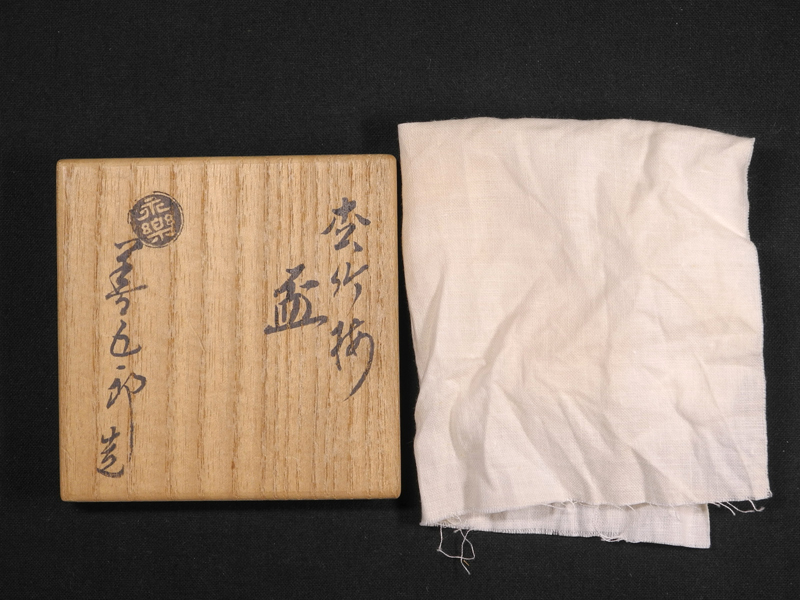 松竹梅
盃
永樂
善五郎造